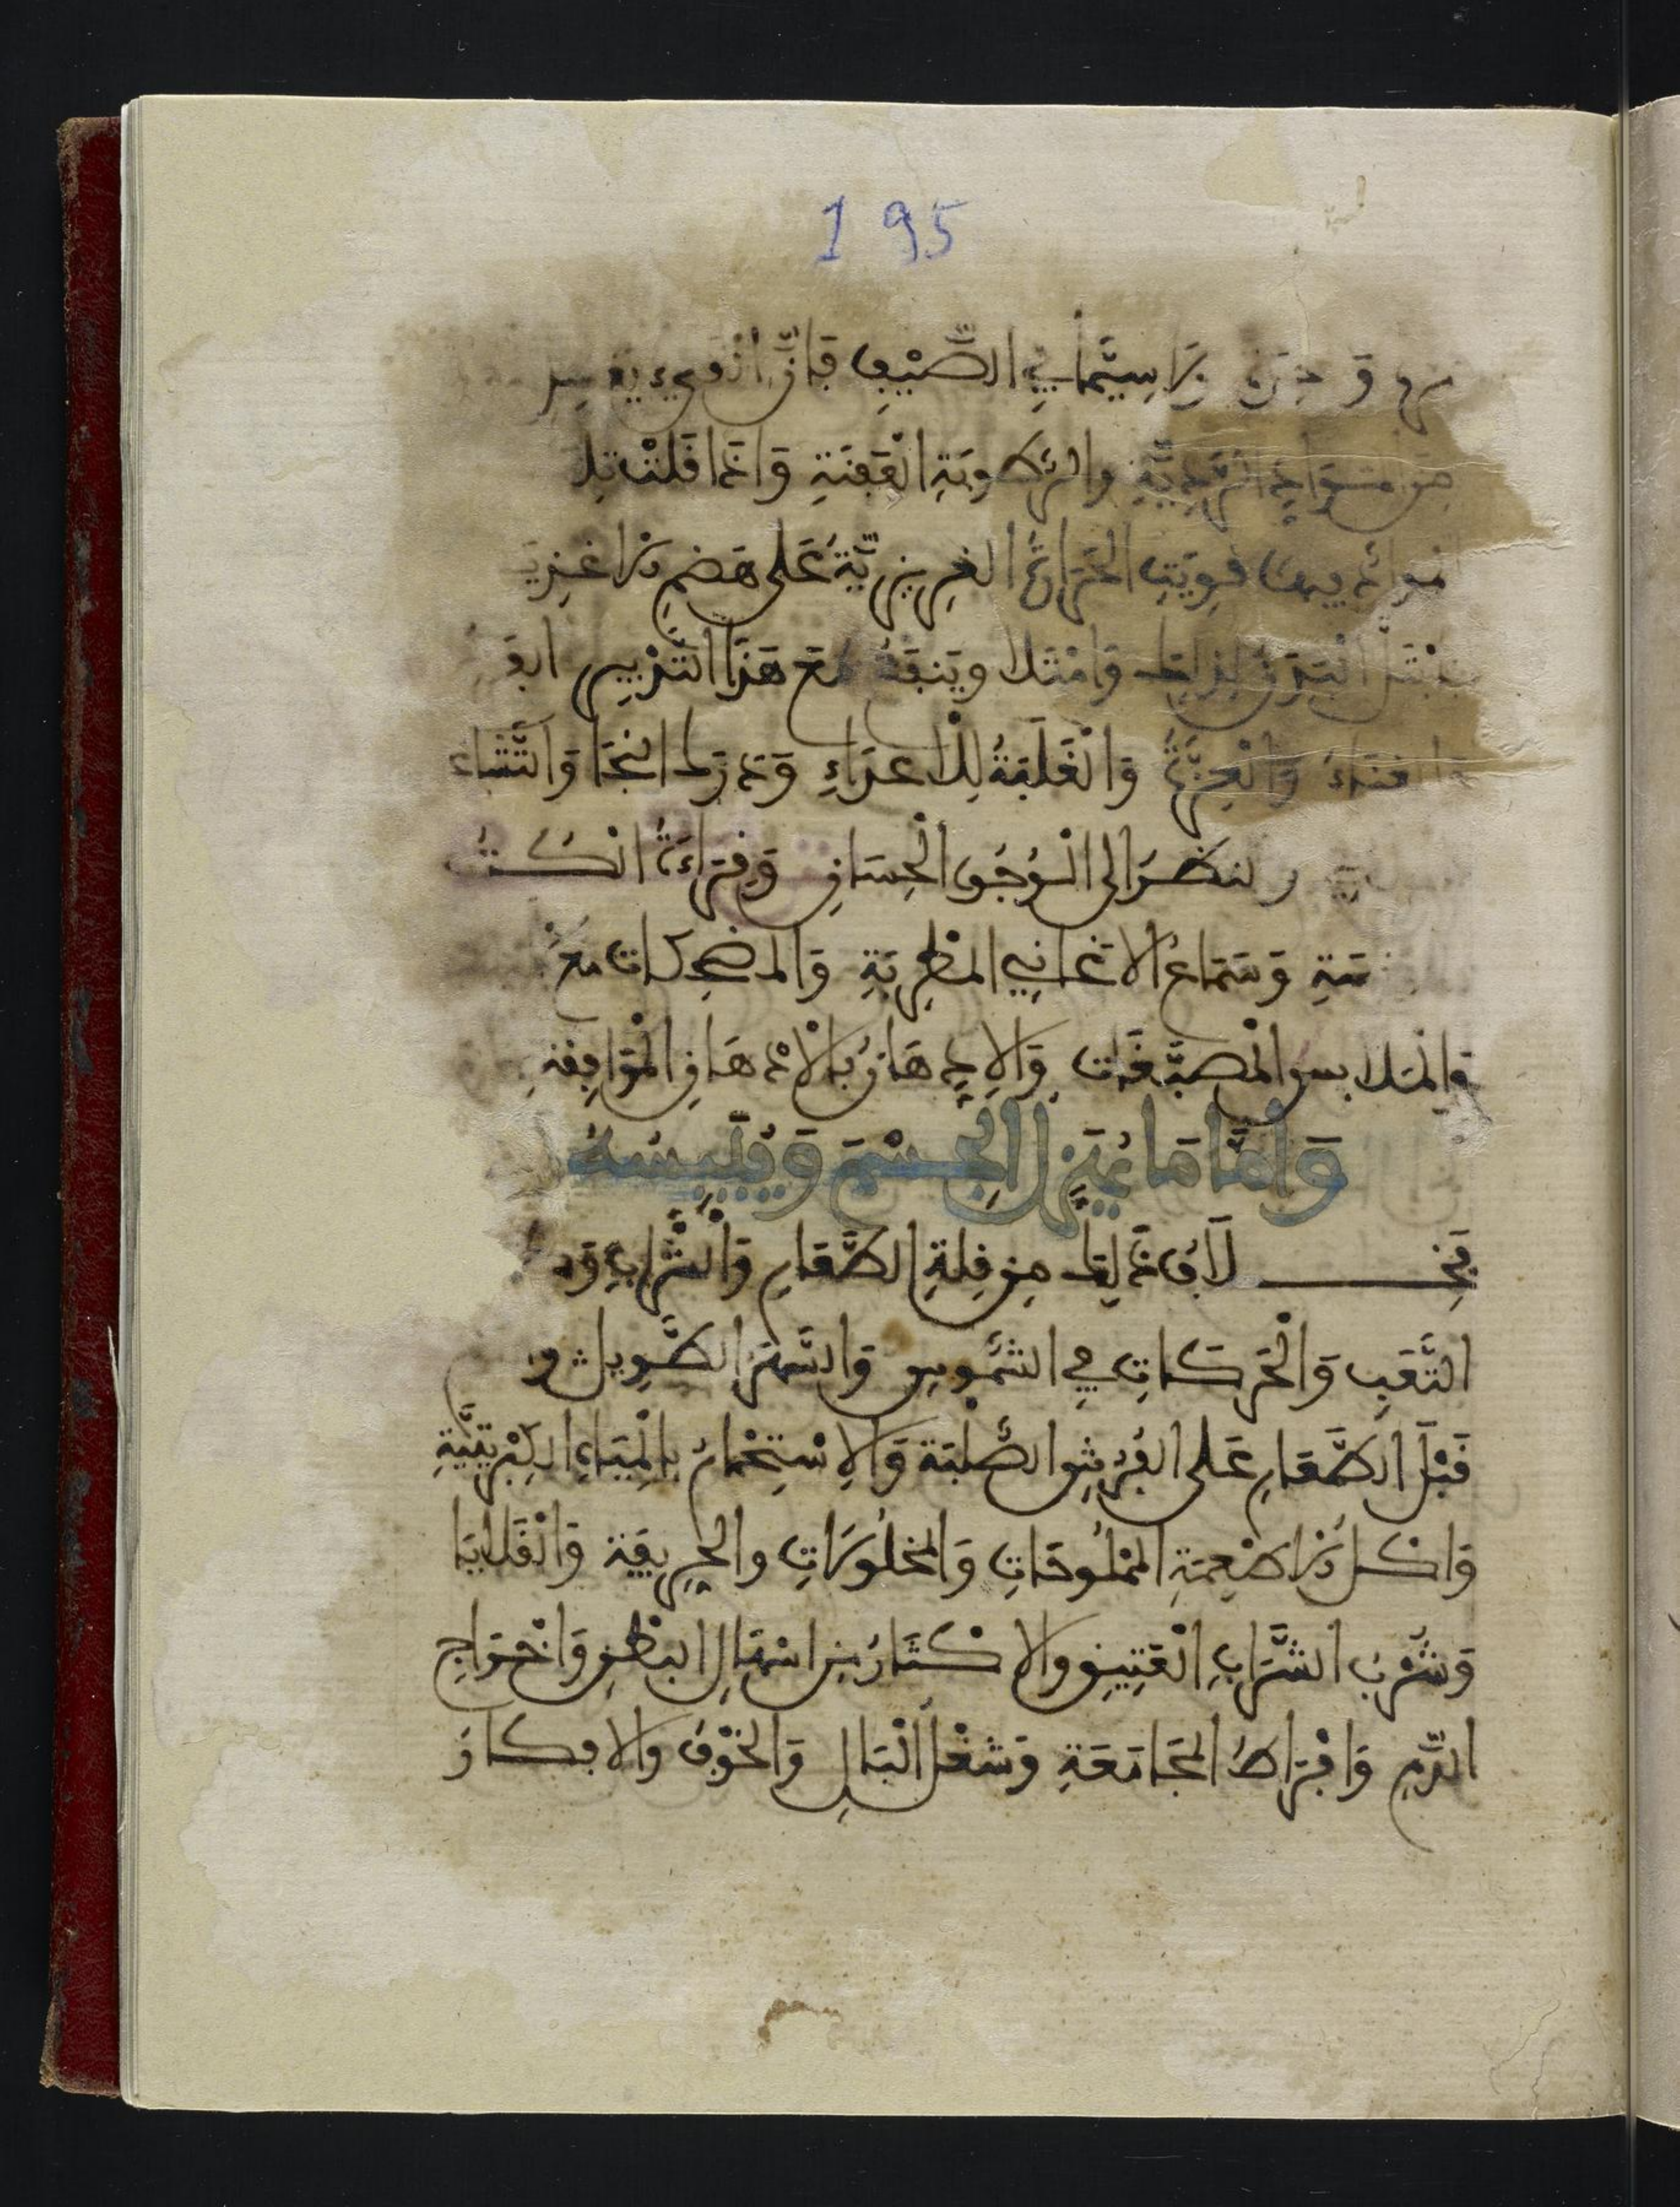 195
لاسيما في الصيف فان القيء
من مواد الردية والرطوبة العفنة واذا قلت تلك
المواد قويت الحرارة الغريزية على هضم الاغذية
البدن لذلك وامتلا وينبغي مع هذا التدبير
والعزة والغلبة للاعداء ودرك الجا والثناء
والنظر الى الوجوه الحسان وقراءة الكتب
وسماع الاغاني المطربة والمضحكات مع
والملابس المصبغات والادهان بالادهان الموافقة
وَامَّا مَا يُهَزِّلُ الْجِسْمَ وَيُيَبِّسُهُ
فبخلاف ذلك من قلة الطعام والشراب و
التَّعَبِ وَالْحَرَكَاتِ فِي الشَّمْسِ وَالسَّهَرِ الطَّوِيلِ و
قَبْلَ الطَّعَامِ عَلى الفُرُشِ الصُّلْبَة وَالِاسْتِحْمَامُ بِالْمِيَاءِ الكِبْرِيتِيَّةِ
وَاكْلُ الاطْعِمَةِ المَمْلُوحَاتِ وَالمخلُورَاتِ والحِرِيفَةِ وَالْقَلايَا
وَشُرْبُ الشَّرَابِ الْعَتِيقِ والاكْثَارُ مِن اسْهَالِ البَطْنِ وَاخْرَاجِ
الدَّمِ وَافْرَاطُ المجَامَعَةِ وَشُغْلُ الْبَالِ وَالخَوْفُ وَالافكَارُ